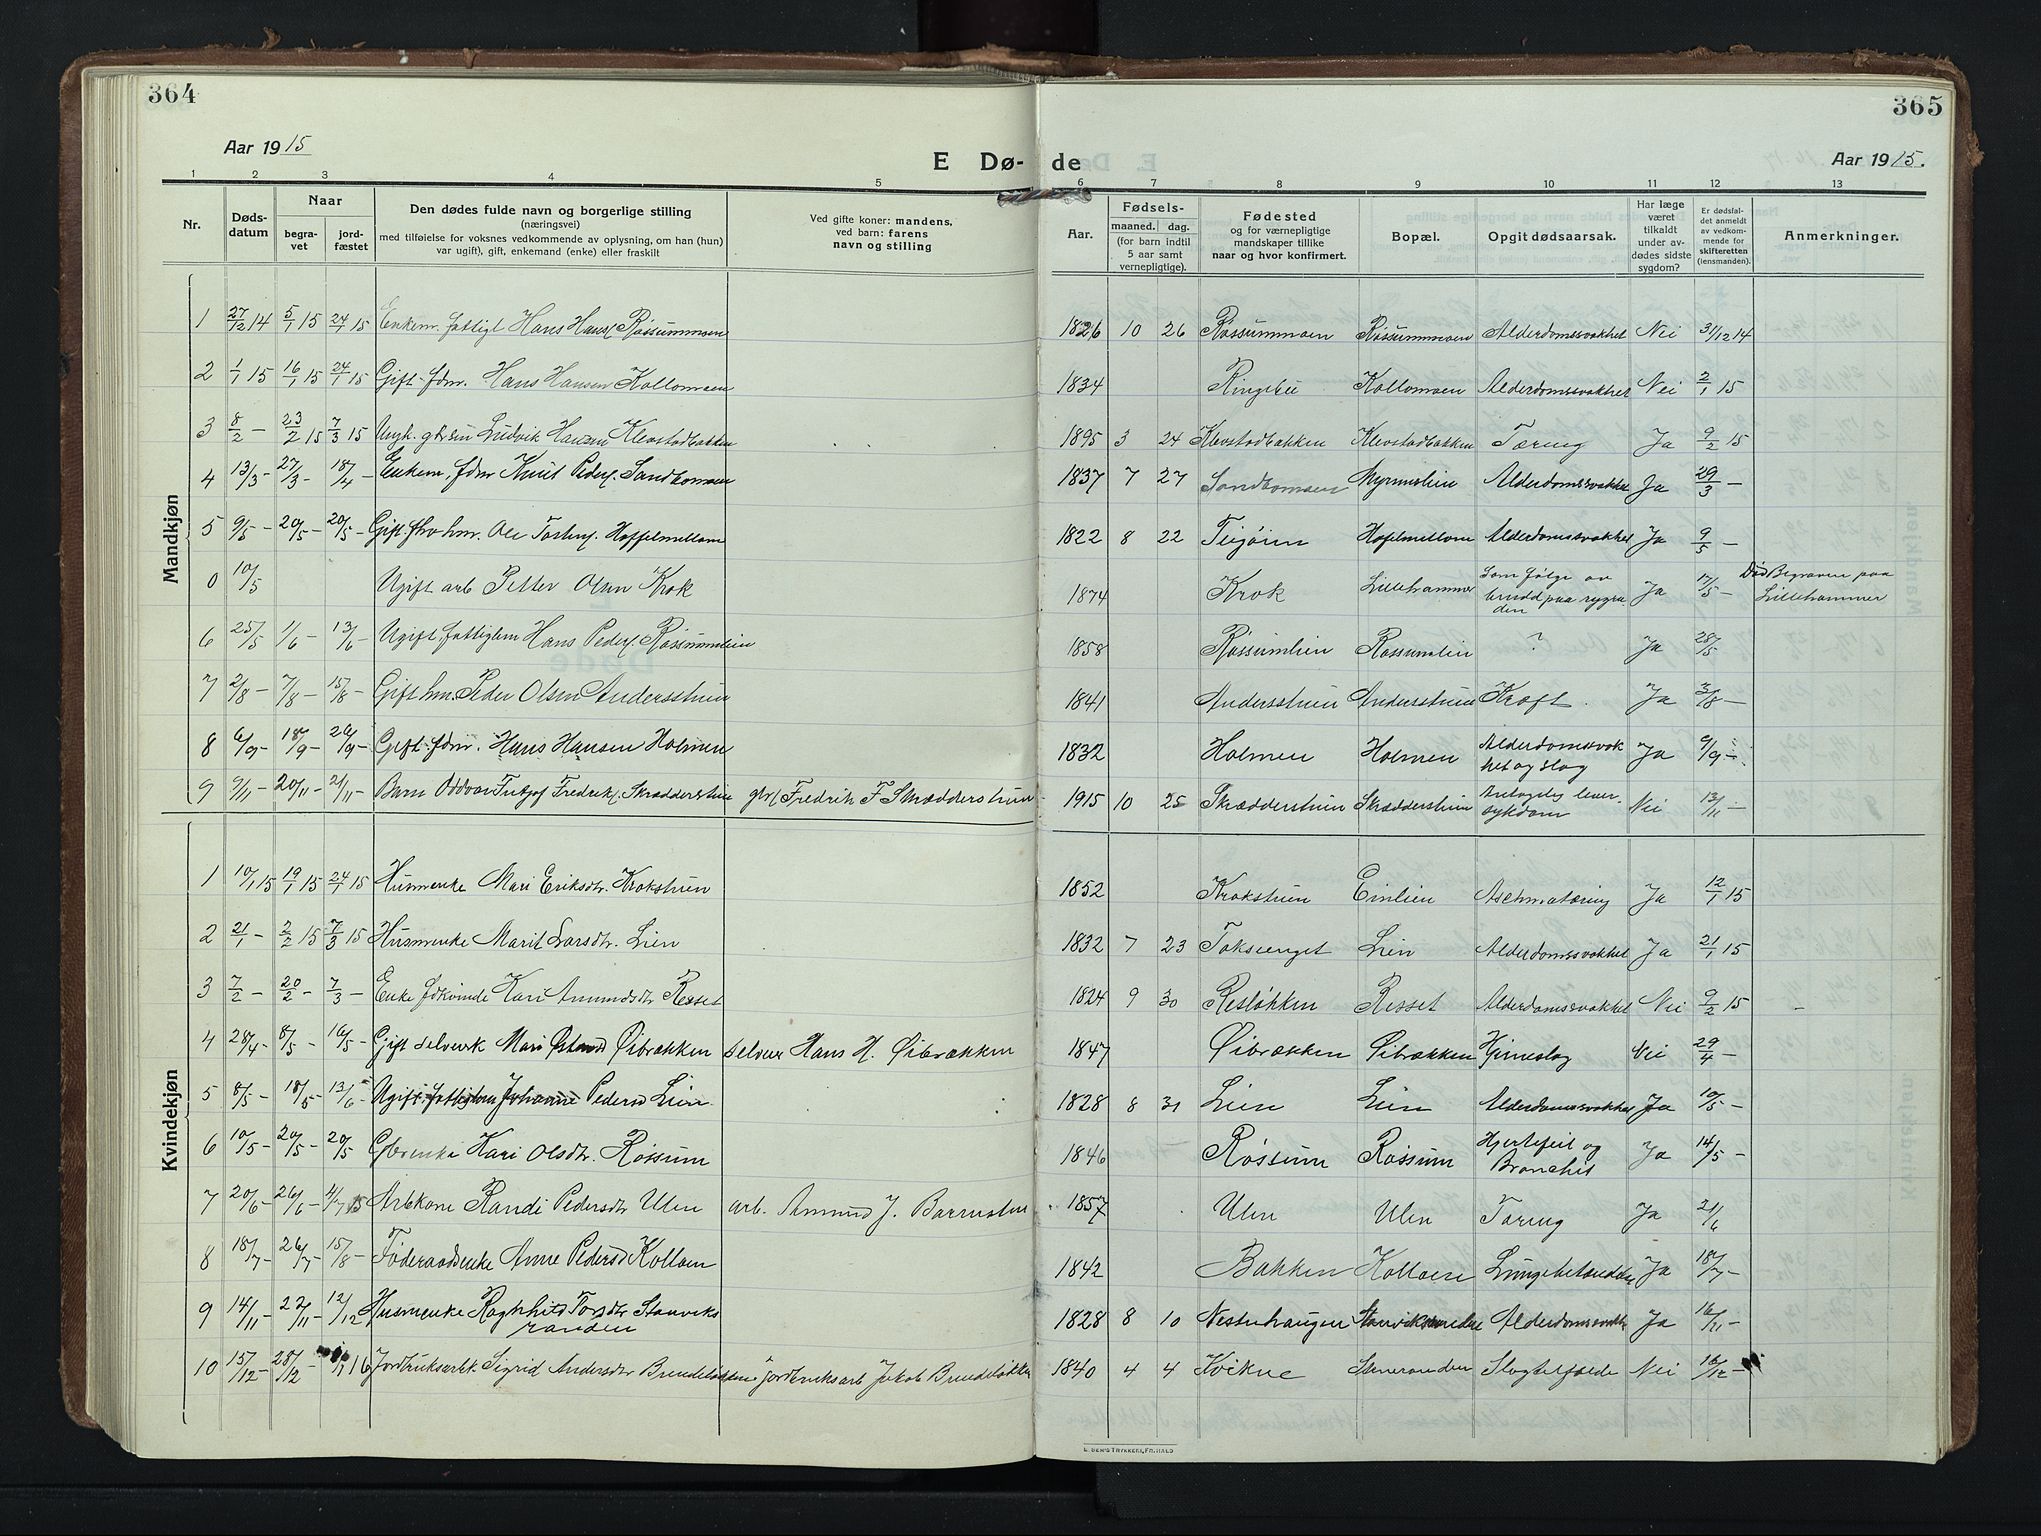 364
365
Aar 1915
E Dø- de
Aar 1915.
1 2 3 4 5 6 7 8 9 10 11 12 13
Nr.
Døds-
datum
Naar
begra-
vet
jord-
fæstet
Den dødes fulde navn og borgerlige stilling
(næringsvei)
med tilføielse for voksnes vedkommende av oplysning, om han (hun)
var ugift), gift, enkemand (enke) eller fraskilt
Ved gifte koner: mandens,
ved barn: farens
navn og stilling
Aar.
Fødsels-
maaned. dag.
(for barn indtil
5 aar samt
vernepligtige).
Fødested
og for værnepligtige
mandskaper tillike
naar og hvor konfirmert.
Bopæl.
Opgit dødsaarsak.
Har læge
været
tilkaldt
under av-
dødes sidste
sygdom?
Er dødsfal-
det anmeldt
av vedkom-
mende for
skifteretten
(lensmanden).
Anmerkninger.
Mandkjøn
1 27/12 14 5/1 15 24/1 15 Enkem. fattigl Hans Hansf Røssummoen 1826 10 26 Røssummoen Røssummoen Alderdomssvakhet Nei 31/12 14
2 1/1 15 16/1 15 24/1 15 Gift fdm. Hans Hansen Kollomoen 1834 Ringebu Kollomoen Alderdomssvakhet Nei 2/1 15
3 8/2 – 23/2 15 7/3 15 Ungk. gbrsøn Ludvik Hansen Klevstadbakken 1895 3 24 Klevstadbakken Klevstadbakken Tæring Ja 9/2 15
4 13/3 – 27/3 – 18/4 – Enkem. fdm Knut Pedersf. Sandbomoen 1837 7 27 Sandbomoen Myrumslien Alderdomssvakhet Ja 29/3 –
5 9/5 – 20/5 – 20/5 – Gift Ole Tostens. Hoffelmellom 1822 8 22 Hofelmellom Alderdomssvakhet Ja 9/5 –
0 10/5 Ugift arb Petter Olsen Krok 1874 Krok Lillehammer Som følge av
brudd paa rygra
den Ja 17/5 – Død Begraven paa
Lillehammer
6 25/5 1/6 – 13/6 – Ugift. fattiglem Hans Pedersf. Røssumslien 1858 Røssumlien Røssumslien ? Ja 28/5
7 2/8 – 7/8 – 15/8 – Gift hm. Peder Olsen Andersstuen 1841 Andersstuen Andersstuen Kræft. Ja 3/8 –
8 6/9 – 18/9 – 26/9 – Gift. fdm. Hans Hansen Holmen 1832 Holmen Holmen Alderdomssvak
het og slag Ja 9/9 –
9 9/11 – 20/11 – 21/11 – Barn Oddvar Fritjof Fredrikf. Skrædderstuen gbr Fredrik F Skrædderstuen 1915 10 25 Skrædderstuen Skrædderstuen Antagelig lever-
sykdom Nei 13/11 –
Kvindekjøn
1 10/1 15 19/1 15 24/1 15 Husmenke Mari Eriksdtr. Krokstuen 1852 Krokstuen Einlien Ja 12/1 15
2 21/1 – 2/2 15 7/3 15 Husmenke Marit Larsdtr. Lien 1832 7 23 Lien Alderdomssvakhet Ja 21/1 15
3 7/2 – 20/2 – 7/3 – Enke fdkvinde Kari Amundsdtr Risset 1824 9 30 Resløkken Risset Alderdomssvakhet Nei 9/2 15 –
4 28/4 – 8/5 – 16/5 – Gift selveierk Mari Øibrækken selveier Hans H. Øibrækken 1847 Øibrækken Øibrækken Hjerneslag Nei 29/4 –
5 8/5 – 18/5 – 13/6 – Ugift. fattiglem Johanne Pedersd Lien 1828 8 31 Lien Lien Alderdomssvakhet Ja 10/5 –
6 10/5 – 20/5 – 20/5 Gbrenke Kari Olsdtr. Røssum 1846 Røssum Røssum Hjertefeil og
Bronchit Ja 14/5 –
7 20/6 – 26/6 – 4/7 15 Arbkone Randi Pedersdtr Ulen arb. Amund J. 1857 Ulen Ulen Tæring Ja 21/6
8 18/7 – 26/7 – 15/8 – Føderaadsenke Anne Pedersd Kolloen 1842 Bakken Kolloen Lungebetændelse Ja 18/7 –
9 14/11 – 22/11 – 12/12 Husmenke Ragnhild Torsdtr Stanviks
randen 1828 8 10 Nestuhaugen Alderdomssvakh Ja 16/11 –
10 15/12 – 28/12 – 16 Jordbruksarbk Sigrid Andersdtr Brendeløkken Jordbruksarb Jakob Brendeløkken 1840 4 4 Kvikne Slagtilfælde Nei 16/12 –
E. SEM'S TRYKKERI, FR.HALD